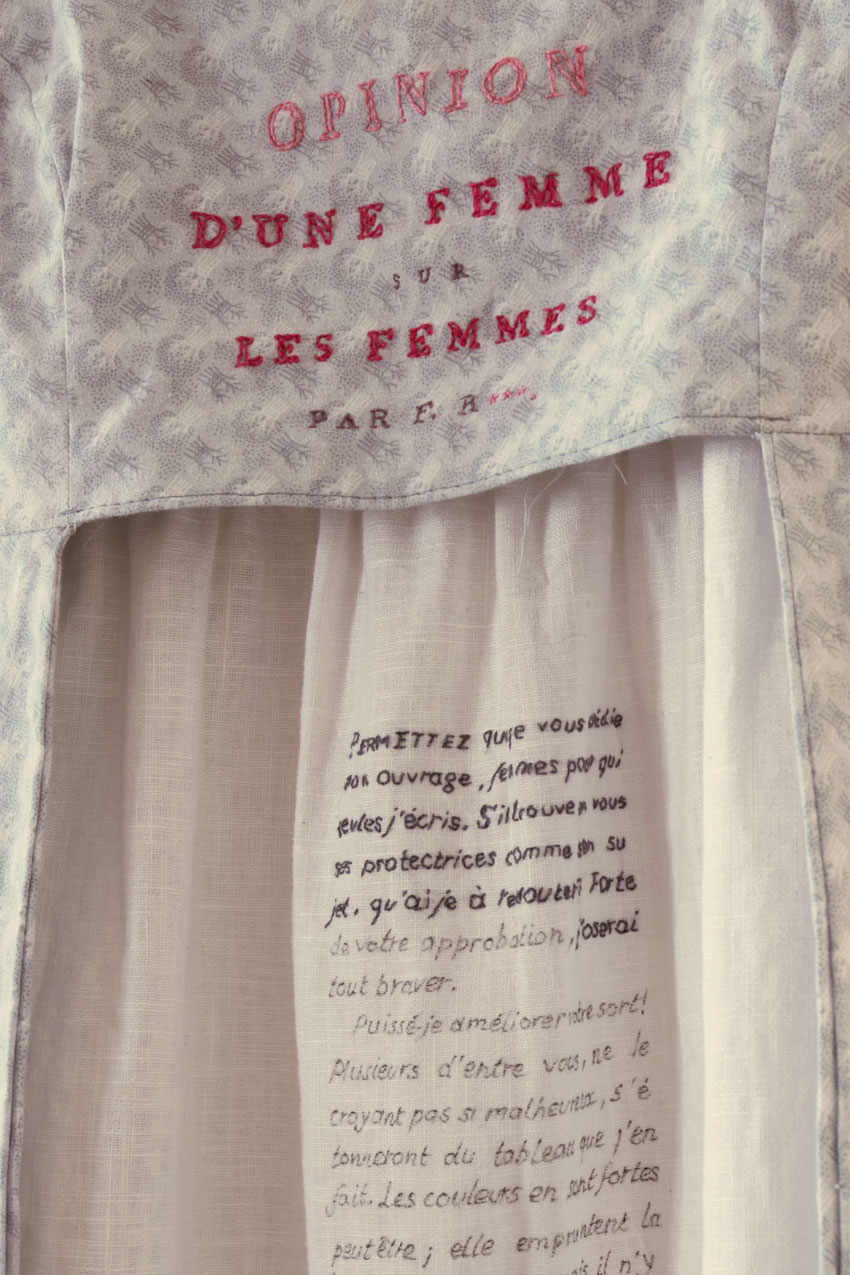 OPINION
D'UNE FEMME
SUR
LES FEMMES
PAR F. R****.
PERMETTEZ que je vous dédie
mon ouvrage, femmes pour qui
seules j'écris. S'il trouve en vous
ses protectrices comme son su
jet. qu'ai je à redouter? Forte
de votre approbation, j'oserai
tout braver.
Puissé-je améliorer notre sort!
Plusieurs d'entre vous, ne le
croyant pas si malheureux, s'é
tonneront du tableau que j'en
fait. Les couleurs en sont fortes
peut être ; elle empruntent la
il n'y